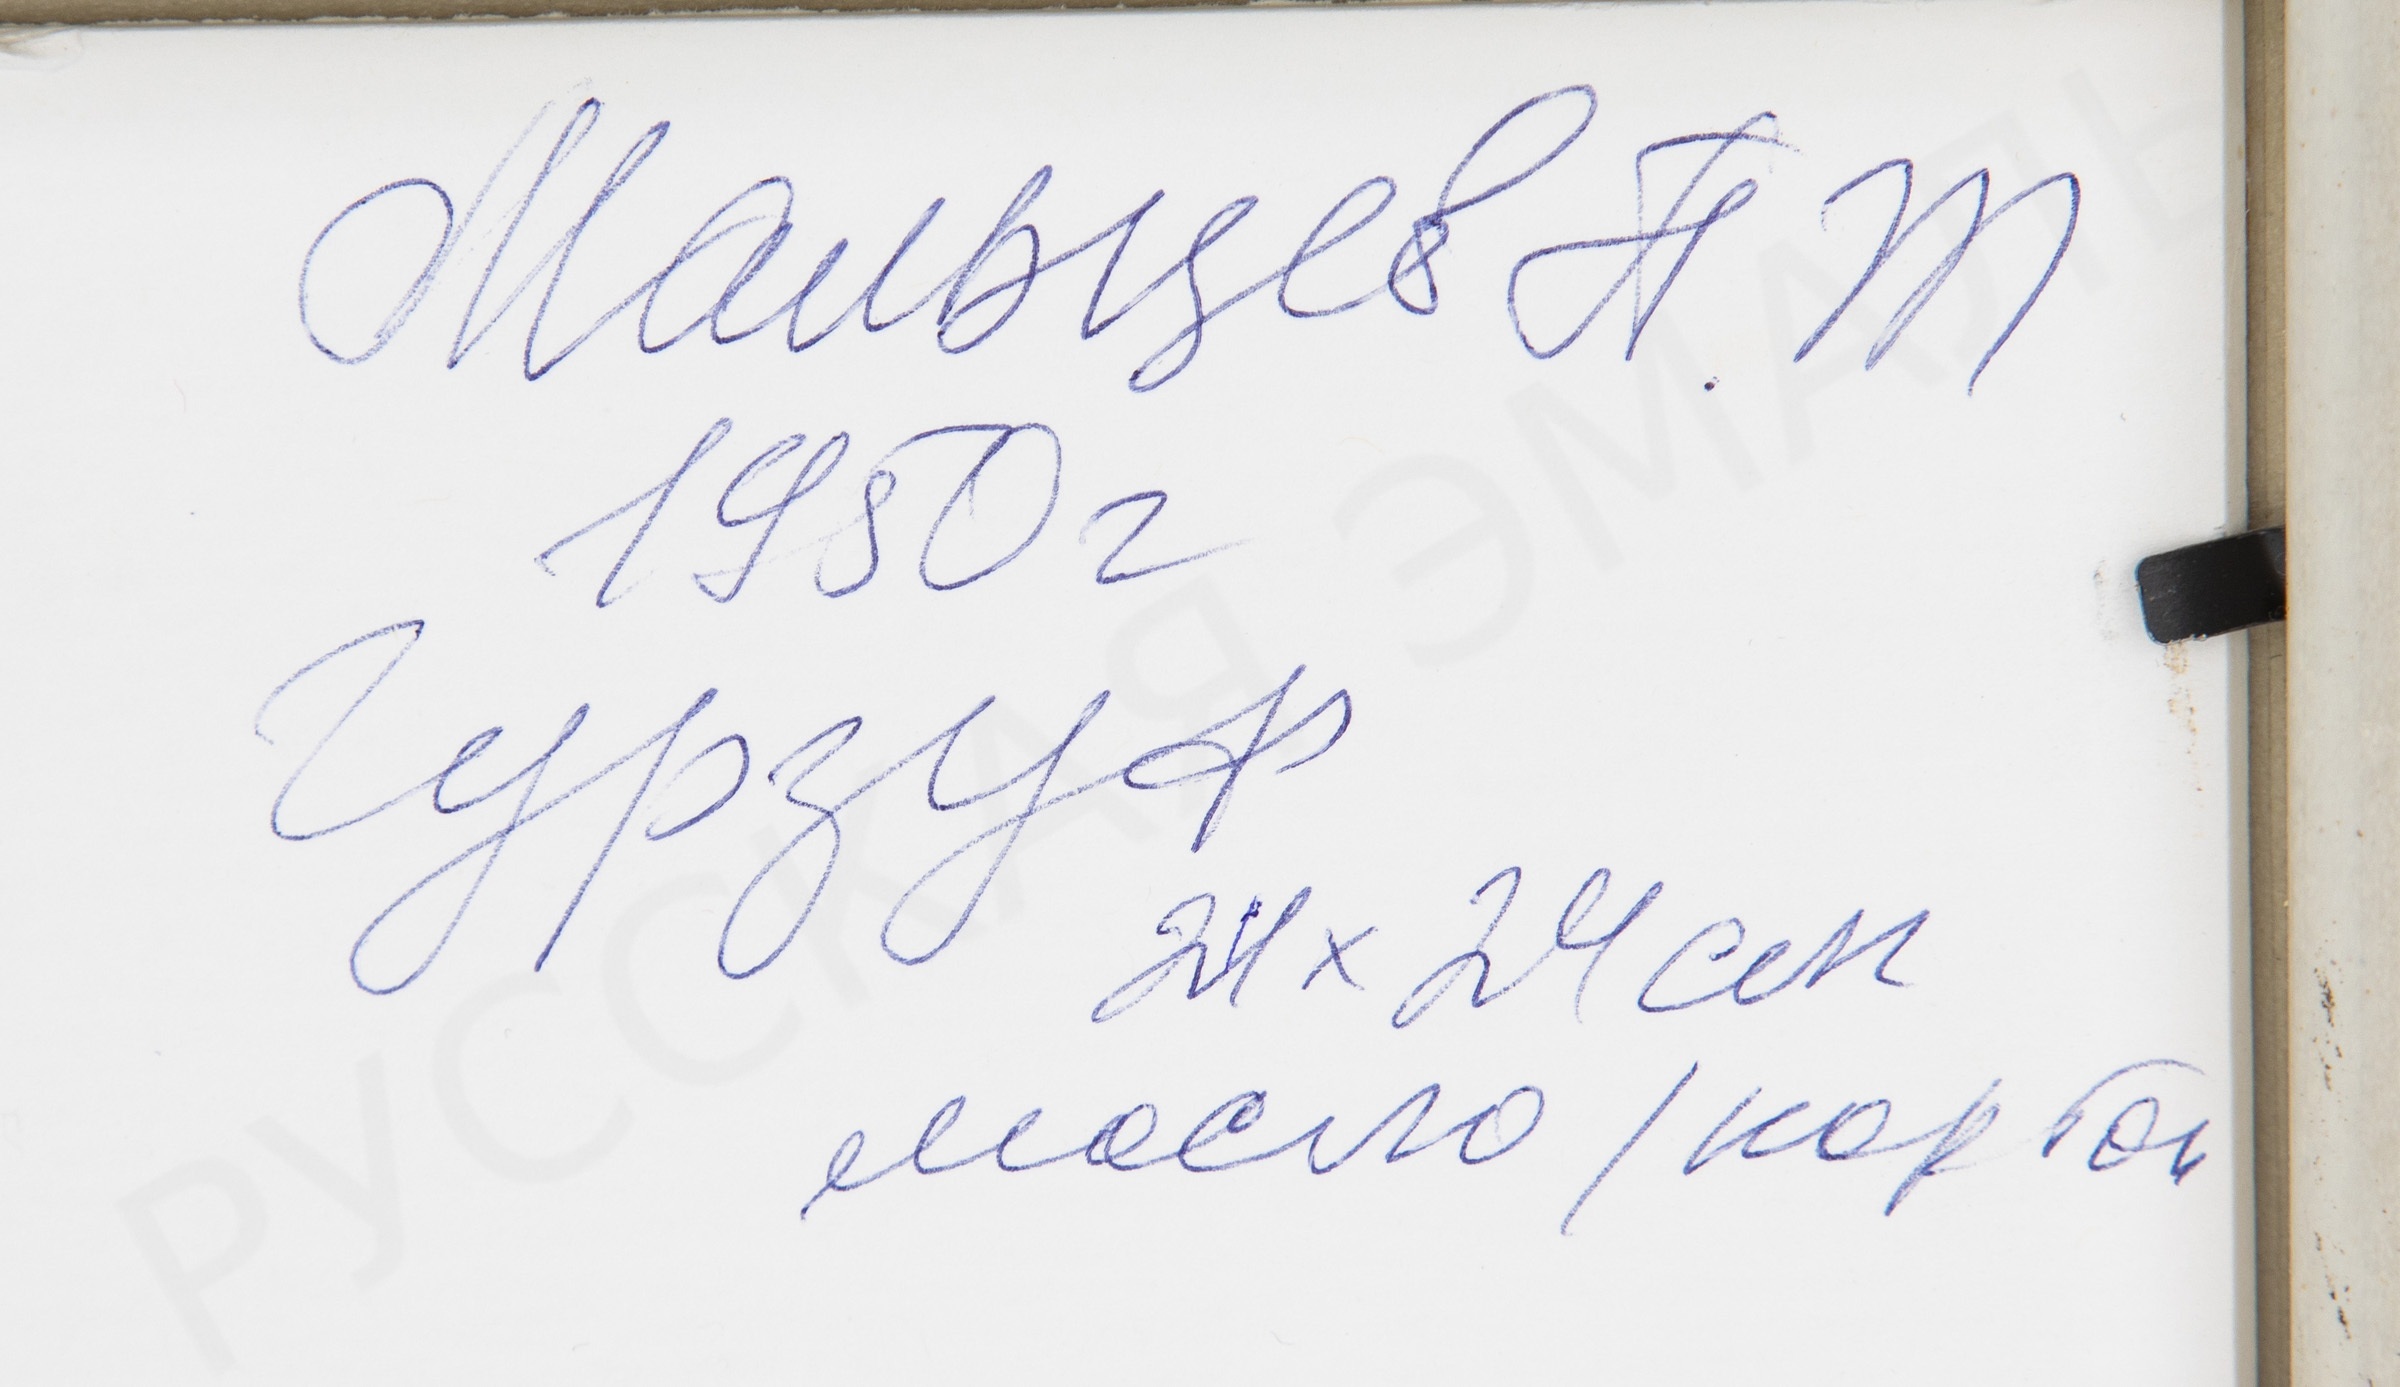 Мальцев П.Т
1950г
Гурзуф
24 х 24 см
масло / картон
РУССКАЯ ЭМАЛЬ